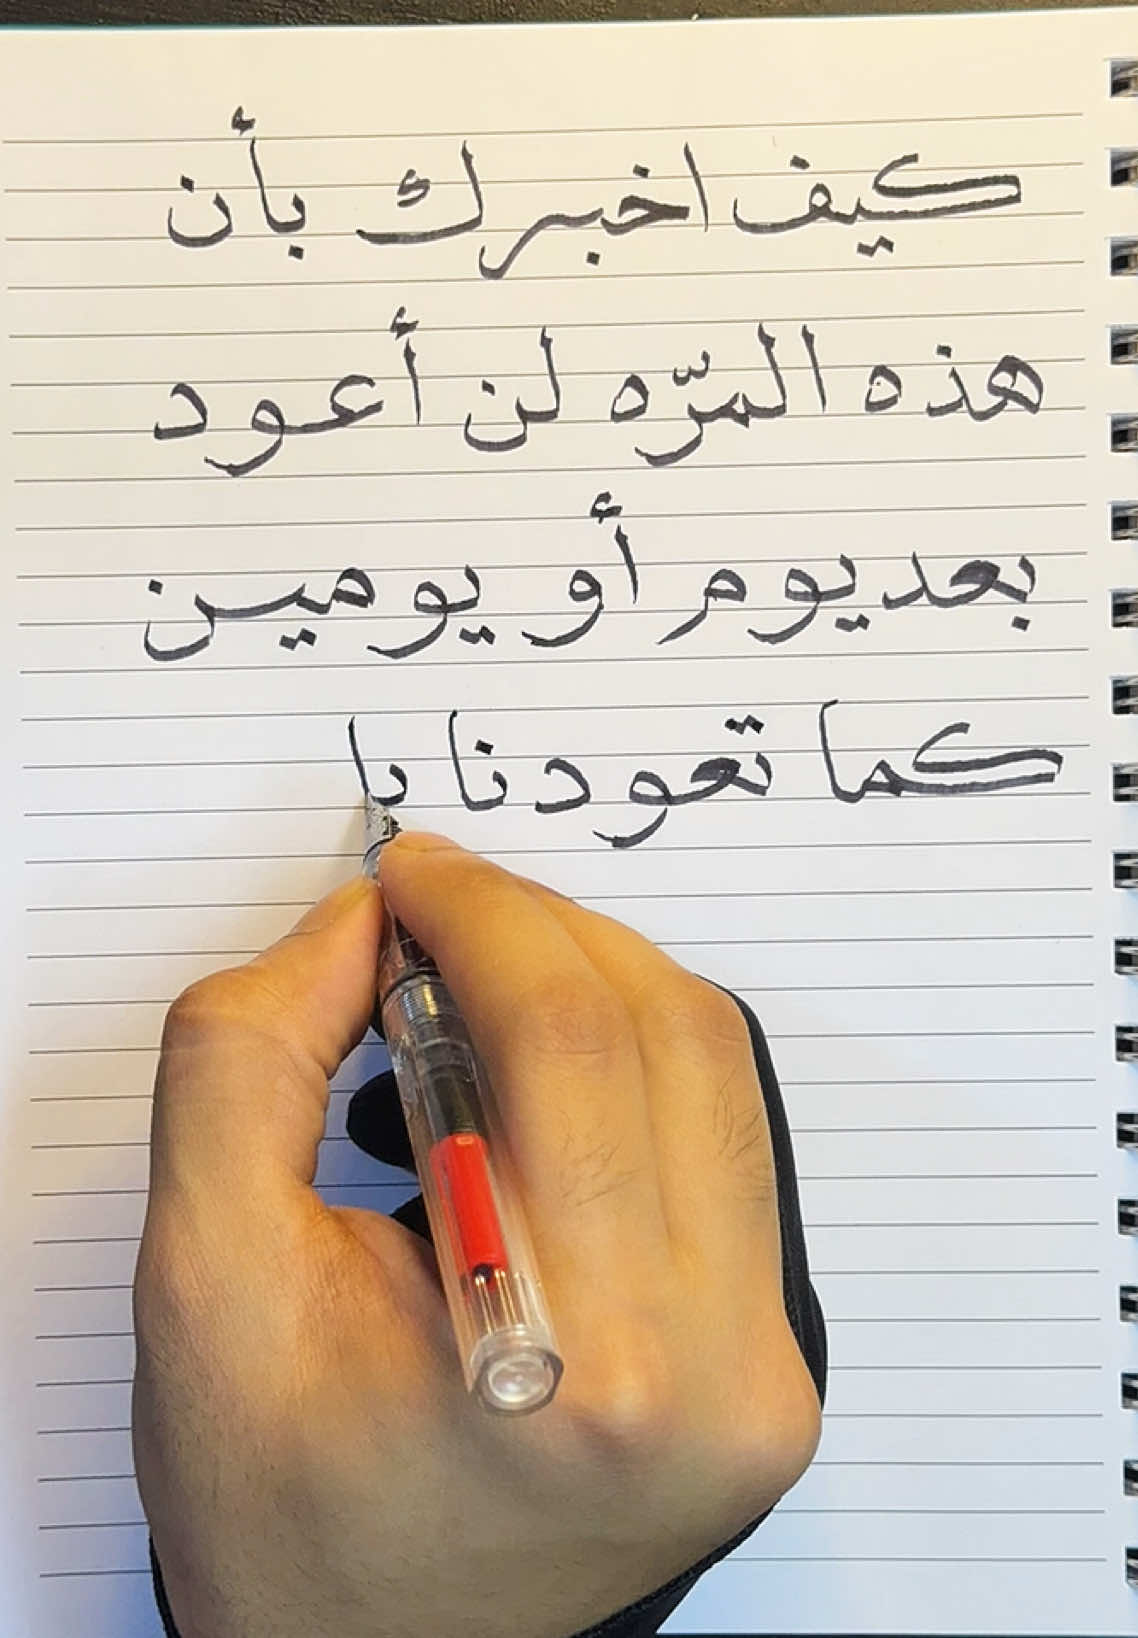 كيف اخبرك بأن
هذه المرّه لن أعود
بعد يوم أو يومين
كما تعودنا